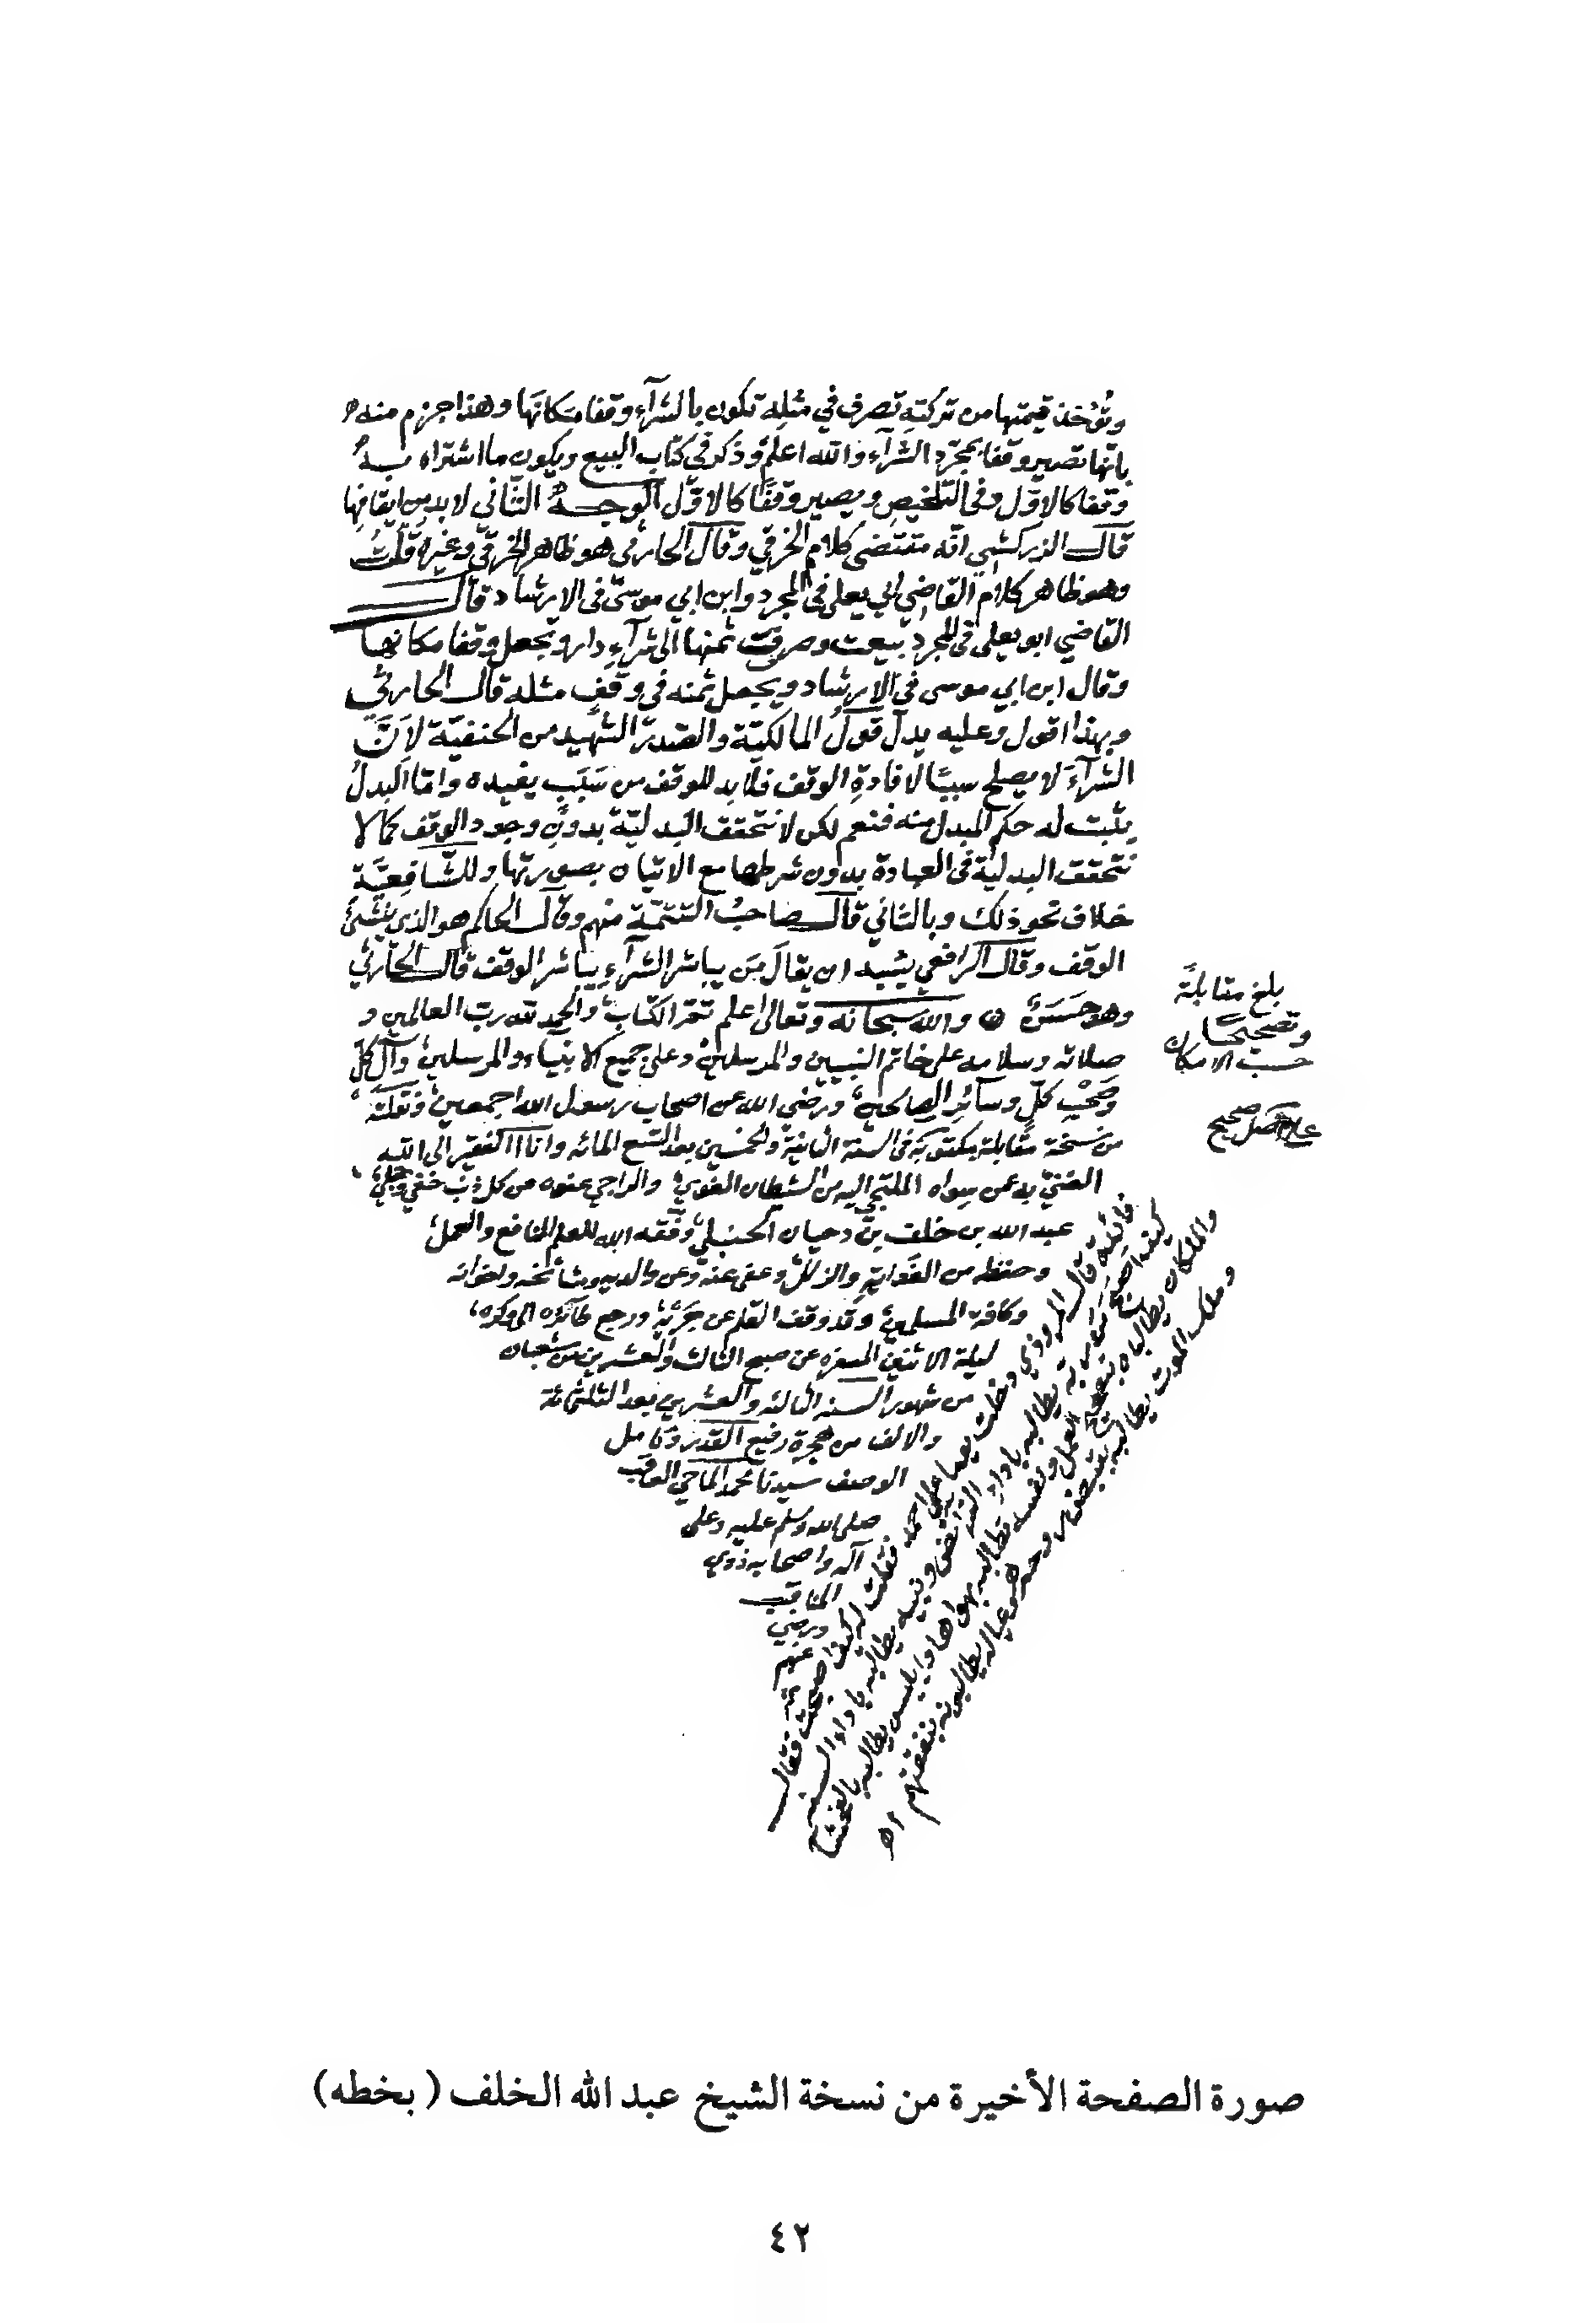 وتُؤخذ قيمتها من تركته تصرف في مثله تكون بالشرآء وقفا مكانَها وهذا جزم منه
بانها تصير وقفا بمجرّد الشرآء والله اعلم وذكر في كتاب البيع ويكون ما اشتراه به
وقفا كالاوّل وفي التلخيص ويصير وقفًا كالاوّل الوجه الثّاني لابد من ايقافها
قال الزركشي انّه مقتضى كلام الخرقي وقال الحارثي هو ظاهر الخرقيّ وغيره قلتُ
وهو ظاهر كلام القاضي ابي يعلى في المجرد وابن ابي موسى في الارشاد قال
القاضي ابو يعلى في المجرد بيعت وصرفت ثمنها الى شرآءِ دار وتجعل وقفا مكانها
وقال ابن ابي موسى في الارشاد ويجعل ثمنه في وقف مثله قال الحارثي
وبهذا اقول وعليه يدلّ قولُ المالكيّة والصّدر الشّهيد من الحنفيّة لاَنَّ
الشرآءَ لا يصلح سببًا لافادةِ الوقف فلا بد للوقف من سَبَبٍ يفيده واما البدلُ
يثبت له حكم المبدل منه فنعم لكن لا تتحقق البدليّة بدون وجود الوقف كما لا
تتحقق البدلية في العبادة بدون شرطها مع الاتيان بصورتها وللشّافعيّة
خلاف نحو ذلك وبالثاني قال صاحبُ التتمّة منهم وقال الحاكم هو الذي ينشئُ
الوقف وقال الرافعي يشبه ان يقالَ مَن يباشر الشرآءِ يباشر الوقف قال الحارثي
وهو حَسَنٌ والله سبحانه وتعالى اعلم تمّ الكتاب والحمد لله ربّ العالمين و
صلاته وسلامه على خاتم النبيين والمرسلين وعلى جميع الانبياء والمرسلين وآل كلّ
وصَحْبِ كلّ وسآئر الصالحين ورضي الله عن اصحاب رسول الله اجمعين ونقلته
من نسخة مقابلة مكتوبة في السنة الثانية والخمسين بعد التسع المائه وانا الفقير الى الله
الغنيّ به عمن سواه الملتجى اليه من الشيطان الغوي والراجي عفوه من كل ذنب خفي وجلي
عبد الله بن خلف بن دحيان الحنبلي وفّقه الله للعلم النافع والعمل
وحفظه من الغَوايةِ والزلل وعفى عنه وعن والديه ومشائخه واخوانه
وكافة المسلمين وقد وقف القلم عن جَرْيِهِ ورجع طآئره الى وكره
ليلة الاثنين المسفره عن صبح الثالث والعشرين من شعبان
من شهور السنه الثالثه والعشرين بعد الثلثمائة
والالف من هجرة رفيع القدر وكامل
الوصف سيدنا محمد الماحي العاقب
صلى الله وسلم عليه وعلى
آله واصحابه ذوي
المناقب
ورضي
عنهم
بلغ مقابلةً
وتصحيحًا
حسب الامكان
على اصل صحيح
فائدة قال المروذي دخلت يوما على احمد فقلت له كيف اصبحت فقال
كيف اصبح من ربه يطالبه باداء الفرائض ونبيه يطالبه باداء السنه
والملكان يطالبانه بتصحيح العمل ونفسه تطالبه بهواها وابليس يطالبه بالفحشا
وملك الموت يطالبه بقبض روحه وعياله يطالبونه بنفقتهم اه
صورة الصفحة الأخيرة من نسخة الشيخ عبد الله الخلف (بخطه)
٤٢